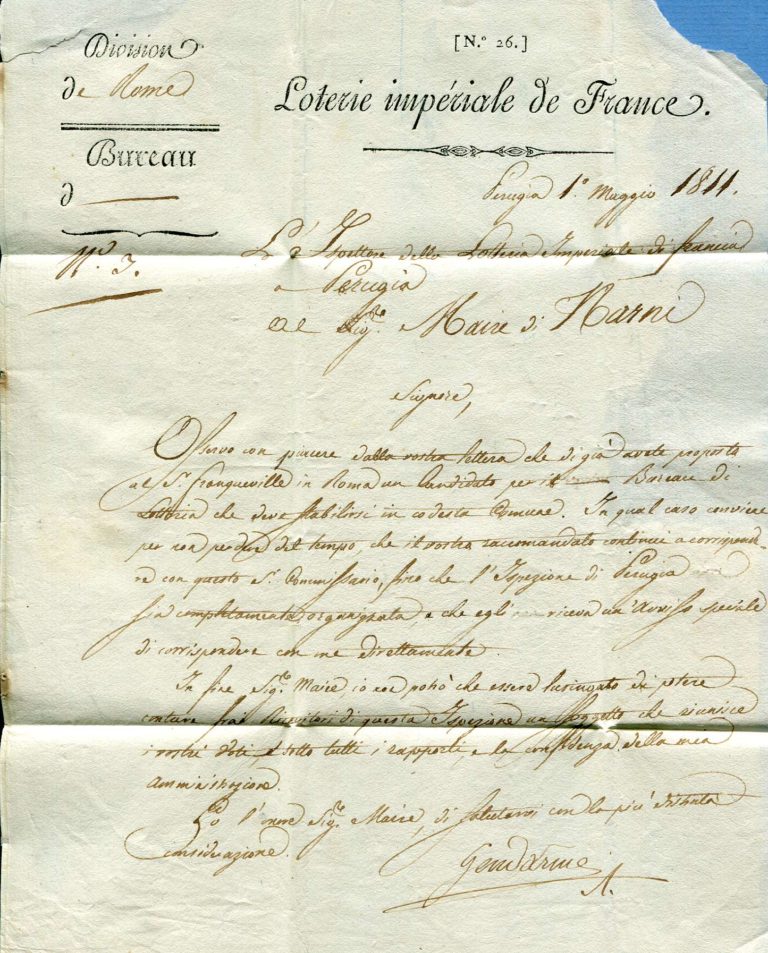 Division
de Rome
Bureau
d
N.º 3.
[N.º 26.]
Loterie impériale de France.
Perugia 1.º Maggio 1811.
L'Ispettore della Lotteria Imperiale di Francia
a Perugia
Al Sig.re Maire di Narni
Signore,
Osservo con piacere dalla vostra lettera che di già avete proposto
al S.r Franqueville in Roma un Candidato per il Bureau di
Lotteria che deve stabilirsi in codesta Comune. In qual caso conviene
per non perdere del tempo, che il vostro raccomandato continui a corrisponde-
re con questo S.r Commissario, fino che l'Ispezione di Perugia
sia completamente organizzata, e che egli riceva un'Avviso speciale
di corrispondere con me direttamente.
In fine Sig.re Maire, io non potrò che essere lusingato di potere
contare fra i Ricevitori di questa Ispezione un Soggetto che riunisce
i vostri Voti e sotto tutti i rapporti, e la confidenza della mia
Amministrazione.
Ho l'onore Sig.re Maire, di salutarvi con la più distinta
Considerazione.
Gendarme